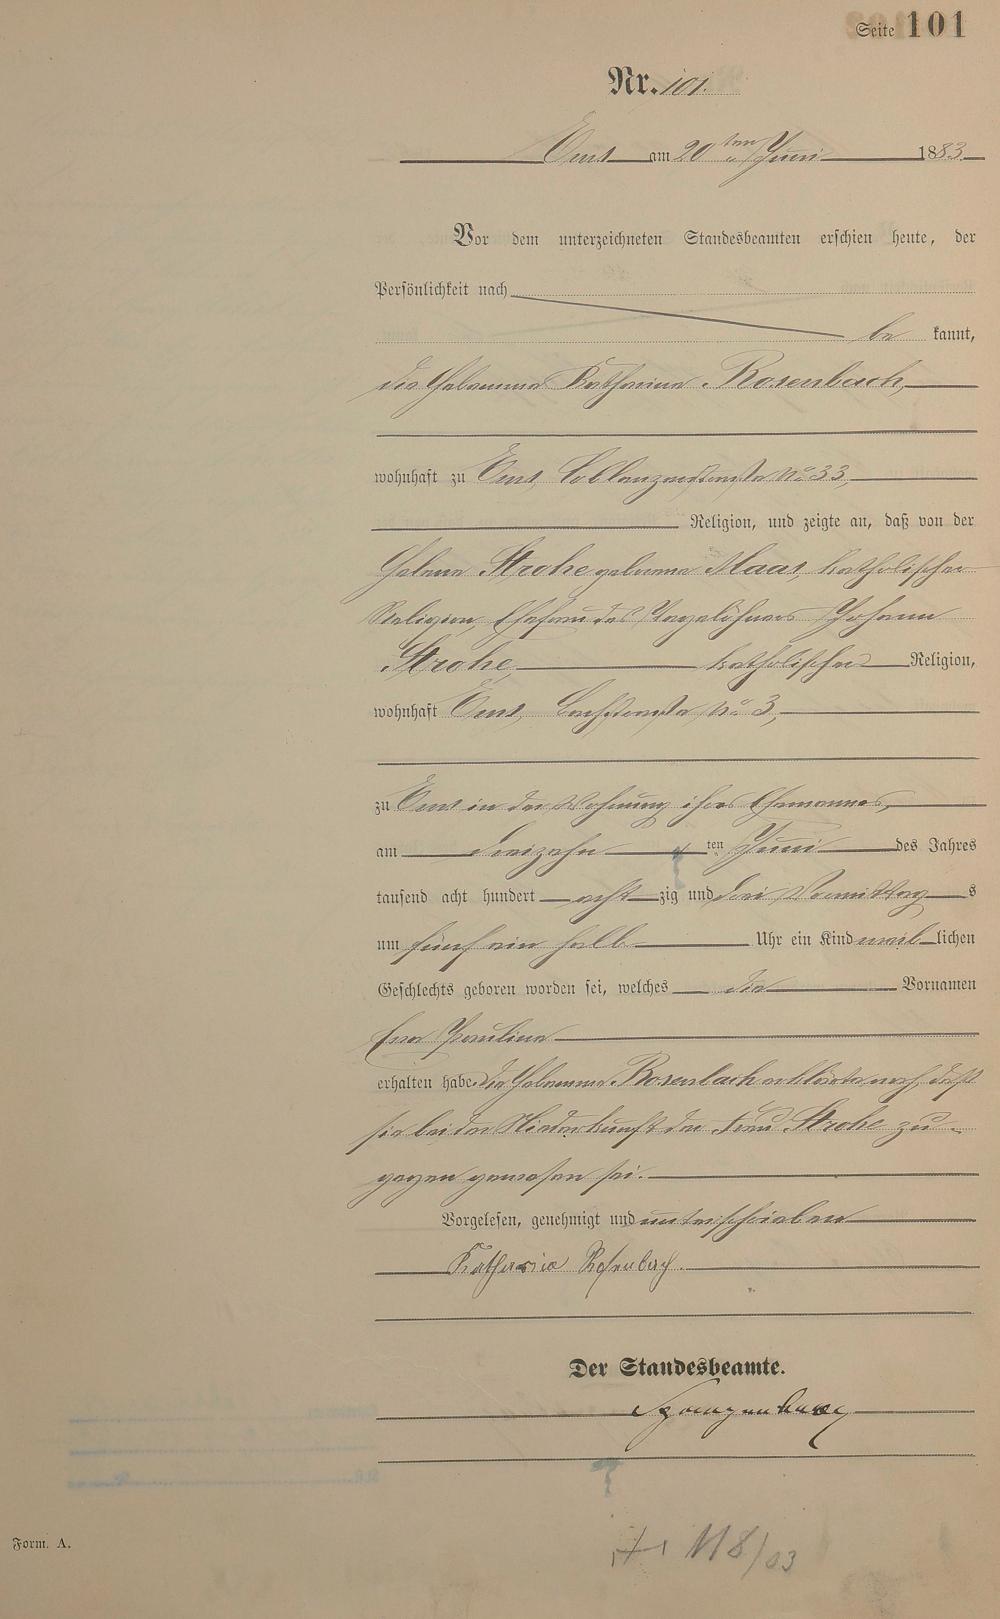 Seite 101
Nr. 101.
Ems am 20ten Juni 1883
Vor dem unterzeichneten Standesbeamten erschien heute, der
Persönlichkeit nach
be kannt,
die Hebamme Katharina Rosenbach,
wohnhaft zu Ems, Coblenzerstraße No 33,
Religion, und zeigte an, daß von der
Helene Strohe geborene Maas, katholischer
Religion, Ehefrau des Tagelöhners Johann
Strohe, katholischer Religion,
wohnhaft Ems, Bachstraße No 3,
zu Ems in der Wohnung ihres Ehemannes,
am dreizehn ten Juni des Jahres
tausend acht hundert acht zig und drei Vormittag s
um fünf ein halb Uhr ein Kind weib lichen
Geschlechts geboren worden sei, welches die Vornamen
Eva Pauline
erhalten habe. Die Hebamme Rosenbach erklärte noch, daß
sie bei der Niederkunft der Frau Strohe zu-
gegen gewesen sei.
Vorgelesen, genehmigt und unterschrieben
Katharina Rosenbach.
Der Standesbeamte.
Form. A.
118/03